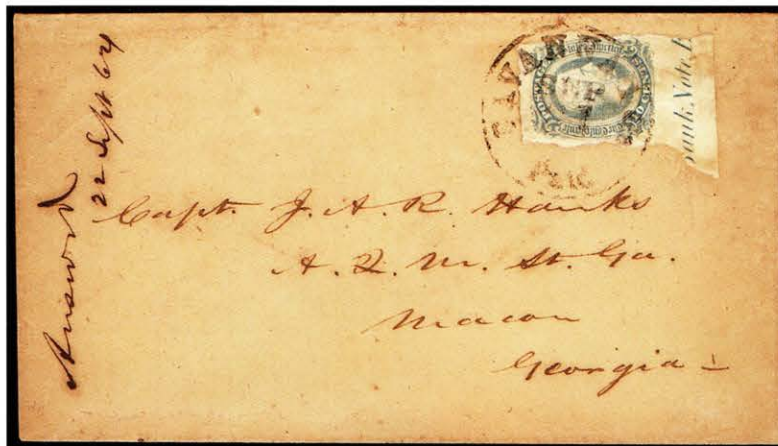 Answd
22 Sept 64
SAVANNAH
Bank Note E
Capt. J. A. R. Hanks
A. Q. M. St. Ga.
Macon
Georgia